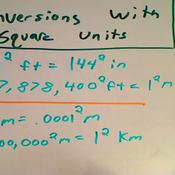 nversions with
Square units
² ft = 144² in
7,878,400² ft = 1² m
m = .0001² m
00,000² m = 1² Km